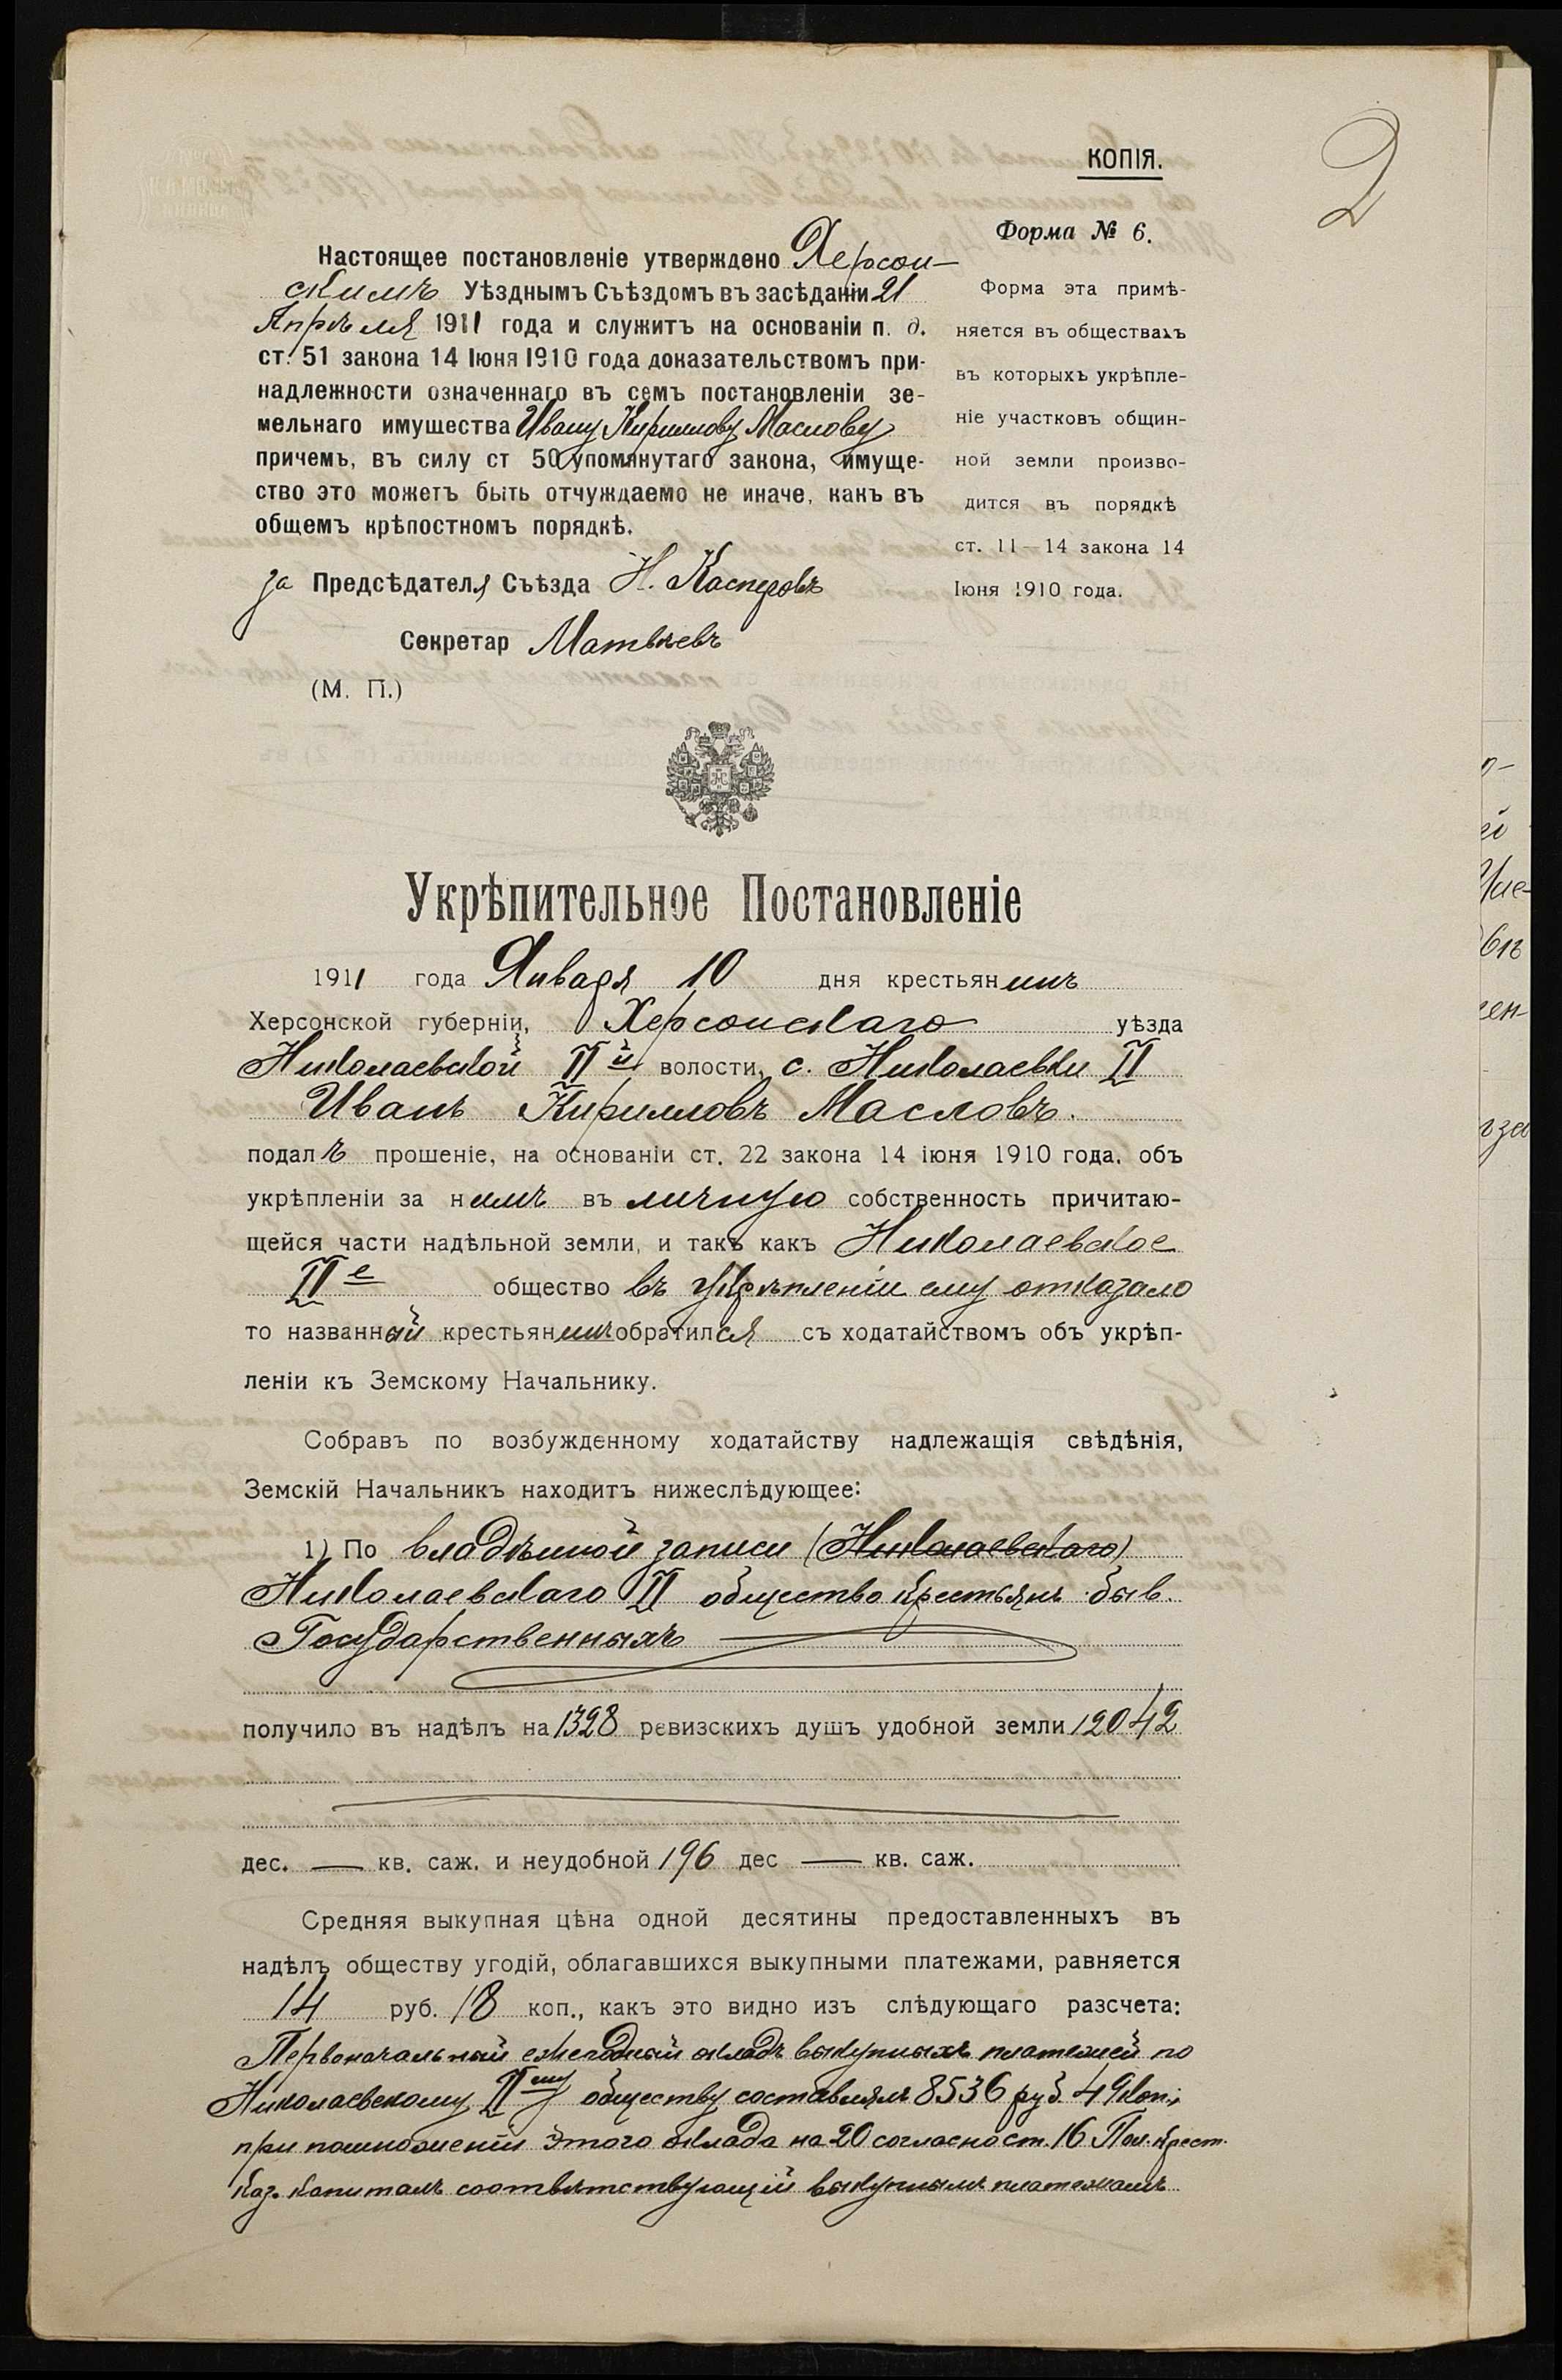 2
КОПІЯ.
Форма № 6.
Форма эта примѣ-
няется въ обществахъ
въ которыхъ укрѣпле-
ніе участковъ общин-
ной земли произво-
дится въ порядкѣ
ст. 11—14 закона 14
Іюня 1910 года.
Настоящее постановленіе утверждено Херсон-
скимъ Уѣзднымъ Съѣздомъ въ засѣданіи 21
Апрѣля 1911 года и служитъ на основаніи п. д.
ст. 51 закона 14 Іюня 1910 года доказательствомъ при-
надлежности означеннаго въ семъ постановленіи зе-
мельнаго имущества Ивану Кириллову Маслову
причемъ, въ силу ст 50 упомянутаго закона, имуще-
ство это можетъ быть отчуждаемо не иначе, какъ въ
общемъ крѣпостномъ порядкѣ.
за Предсѣдателя Съѣзда Н. Касперовъ
Секретар Матвѣевъ
(М. П.)
Укрѣпительное Постановленіе
1911 года Января 10 дня крестьянинъ
Херсонской губерніи, Херсонскаго уѣзда
Николаевской II й волости, с. Николаевки II
Иванъ Кирилловъ Масловъ.
подалъ прошеніе, на основаніи ст. 22 закона 14 іюня 1910 года, объ
укрѣпленіи за нимъ въ личную собственность причитаю-
щейся части надѣльной земли, и такъ какъ Николаевское
II е общество въ укрѣпленіи ему отказало
то названный крестьянинъ обратился съ ходатайствомъ объ укрѣп-
леніи къ Земскому Начальнику.
Собравъ по возбужденному ходатайству надлежащія свѣдѣнія,
Земскій Начальникъ находитъ нижеслѣдующее:
1) По владѣнной записи (Николаевскаго)
Николаевскаго II общество крестьянъ быв.
Государственныхъ
получило въ надѣлъ на 1328 ревизскихъ душъ удобной земли 12042
дес. — кв. саж. и неудобной 196 дес — кв. саж.
Средняя выкупная цѣна одной десятины предоставленныхъ въ
надѣлъ обществу угодій, облагавшихся выкупными платежами, равняется
14 руб. 18 коп., какъ это видно изъ слѣдующаго разсчета:
Первоначальный ежегодный окладъ выкупныхъ платежей по
Николаевскому II му обществу составлялъ 8536 руб. 49 коп.;
при помноженіи этого оклада на 20 согласно ст. 16 Пол. Крест.
Каз. капиталъ соотвѣтствующій выкупнымъ платежамъ